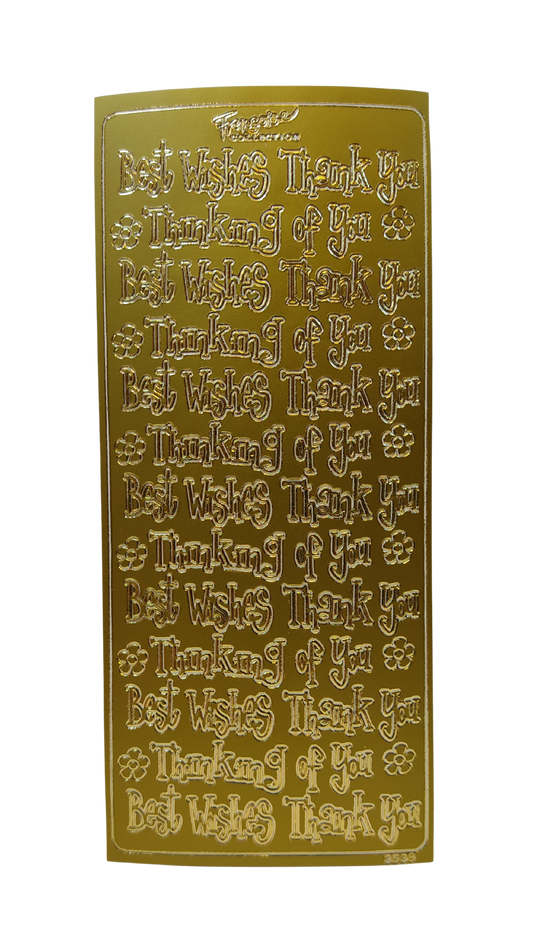 COLLECTION
Best Wishes Thank You
Thinking of You
Best Wishes Thank You
Thinking of You
Best Wishes Thank You
Thinking of You
Best Wishes Thank You
Thinking of You
Best Wishes Thank You
Thinking of You
Best Wishes Thank You
Thinking of You
Best Wishes Thank You